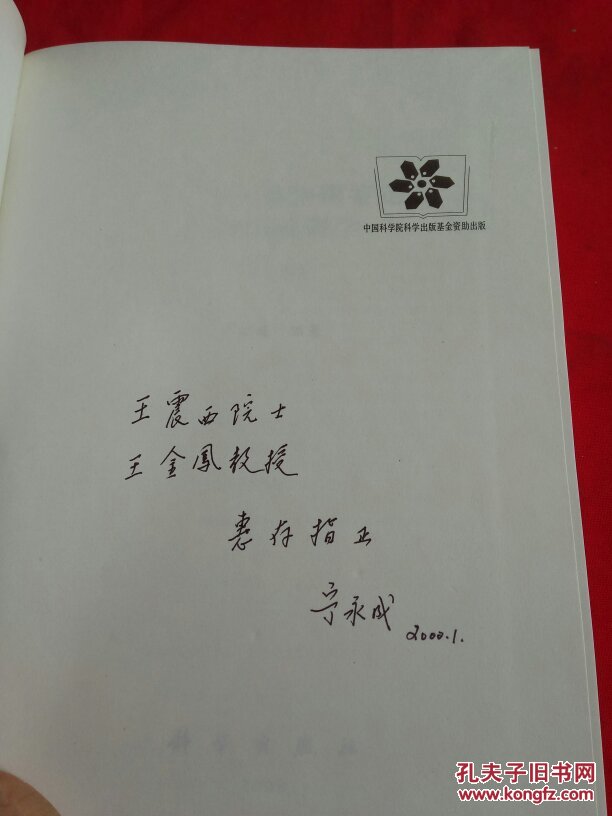 中国科学院科学出版基金资助出版
王震西院士
王金凤教授
惠存指正
宁永成 2000.1.
孔夫子旧书网
www.kongfz.com